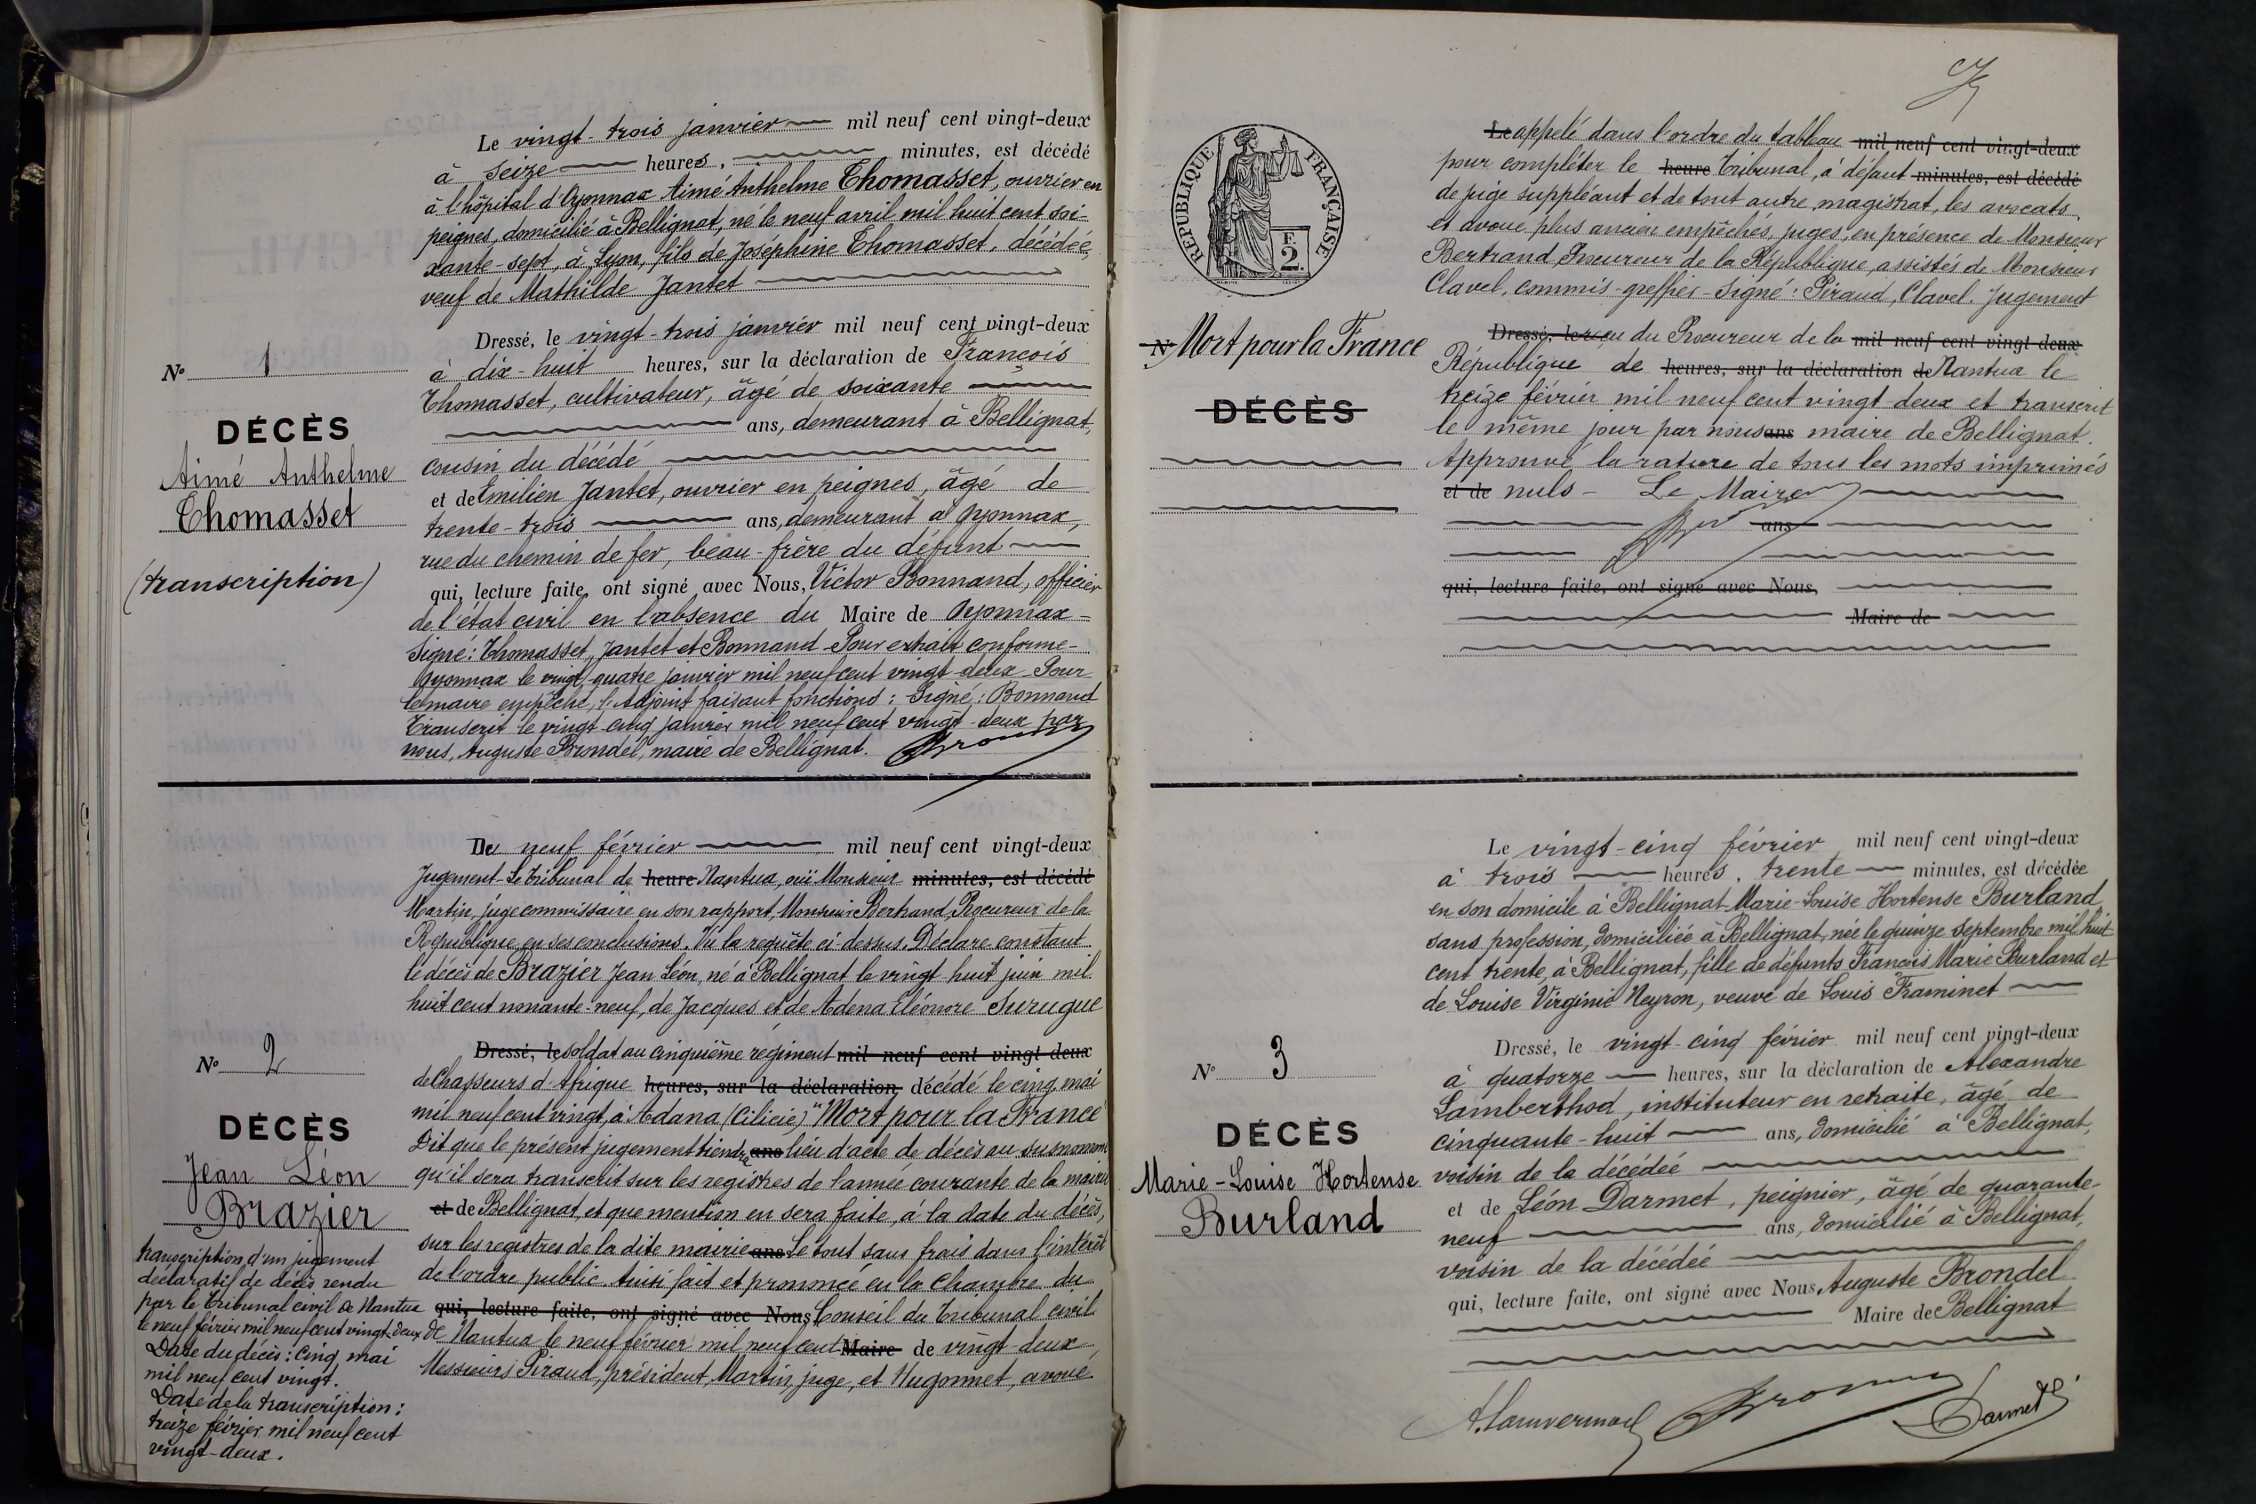 Le vingt-trois janvier mil neuf cent vingt-deux
à seize heures, minutes, est décédé
à l'hôpital d'Oyonnax Aimé Anthelme Thomasset, ouvrier en
peignes, domicilié à Bellignat, né le neuf avril mil huit cent soi-
xante-sept, à Lyon, fils de Joséphine Thomasset, décédée,
veuf de Mathilde Jantet
Dressé, le vingt-trois janvier mil neuf cent vingt-deux
à dix-huit heures, sur la déclaration de François
Thomasset, cultivateur, âgé de soixante
ans, demeurant à Bellignat,
cousin du décédé
et de Emilien Jantet, ouvrier en peignes, âgé de
trente-trois ans, demeurant à Oyonnax,
rue du chemin de fer, beau-frère du défunt
qui, lecture faite, ont signé avec Nous, Victor Bonnand, officier
de l'état civil en l'absence du Maire de Oyonnax-
Signé: Thomasset, Jantet et Bonnand - Pour extrait conforme-
Oyonnax le vingt quatre janvier mil neuf cent vingt-deux - Pour
le maire empêché, l'Adjoint faisant fonctions: Signé: Bonnand
Transcrit le vingt-cinq janvier mil neuf cent vingt-deux par
nous, Auguste Brondel, maire de Bellignat. Brondel
Nº 1
DÉCÈS
Aimé Anthelme
Thomasset
(transcription)
Du neuf février mil neuf cent vingt-deux
Jugement - Le Tribunal de heure Nantua, ouï Monsieur minutes, est décédé
Martin, juge commissaire en son rapport, Monsieur Bertrand, Procureur de la
République, en ses conclusions. Vu la requête ci-dessus. Déclare constant
le décès de Brazier Jean Léon, né à Bellignat le vingt huit juin mil
huit cent nonante-neuf, de Jacques et de Adena Eléonore Surugue
Dressé, le soldat au cinquième régiment mil neuf cent vingt-deux
de Chasseurs d'Afrique heures, sur la déclaration, décédé le cinq mai
mil neuf cent vingt, à Adana (Cilicie) "Mort pour la France"
Dit que le présent jugement tiendra ans lieu d'acte de décès au susnommé
qu'il sera transcrit sur les registres de l'année courante de la mairie
et de Bellignat, et que mention en sera faite, à la date du décès,
sur les registres de la dite mairie ans Le tout sans frais dans l'intérêt
de l'ordre public. Ainsi fait et prononcé en la Chambre du
qui, lecture faite, ont signé avec Nous, Conseil du Tribunal civil
de Nantua le neuf février mil neuf cent Maire de vingt-deux,
Messieurs Piraud, président, Martin, juge, et Hugonnet, avoué
Nº 2
DÉCÈS
Jean Léon
Brazier
transcription d'un jugement
déclaratif de décès rendu
par le Tribunal civil de Nantua
le neuf février mil neuf cent vingt-deux
Date du décès: cinq mai
mil neuf cent vingt.
Date de la transcription:
treize février mil neuf cent
vingt-deux.
RÉPUBLIQUE FRANÇAISE
F.
2.
Le appelé dans l'ordre du tableau mil neuf cent vingt-deux
pour compléter le heure Tribunal, à défaut minutes, est décédé
de juge suppléant et de tout autre magistrat, les avocats
et avoué plus ancien empêchés, juges, en présence de Monsieur
Bertrand, Procureur de la République, assistés de Monsieur
Clavel, commis-greffier - Signé: Piraud, Clavel. Jugement
Dressé, le reçu du Procureur de la mil neuf cent vingt-deux
République de heures, sur la déclaration de Nantua le
treize février mil neuf cent vingt-deux et transcrit
le même jour par nous ans maire de Bellignat.
Approuvé la rature de tous les mots imprimés
et de nuls - Le Maire
ans
qui, lecture faite, ont signé avec Nous,
Maire de
Nº Mort pour la France
DÉCÈS
Le vingt-cinq février mil neuf cent vingt-deux
à trois heures, trente minutes, est décédée
en son domicile à Bellignat Marie-Louise Hortense Burland
sans profession, domiciliée à Bellignat, née le quinze septembre mil huit
cent trente, à Bellignat, fille de défunts François Marie Burland et
de Louise Virginie Neyron, veuve de Louis Framinet
Dressé, le vingt-cinq février mil neuf cent vingt-deux
à quatorze heures, sur la déclaration de Alexandre
Lamberthod, instituteur en retraite, âgé de
cinquante-huit ans, domicilié à Bellignat,
voisin de la décédée
et de Léon Darmet, peignier, âgé de quarante-
neuf ans, domicilié à Bellignat,
voisin de la décédée
qui, lecture faite, ont signé avec Nous, Auguste Brondel
Maire de Bellignat
Brondel Darmet
Nº 3
DÉCÈS
Marie-Louise Hortense
Burland